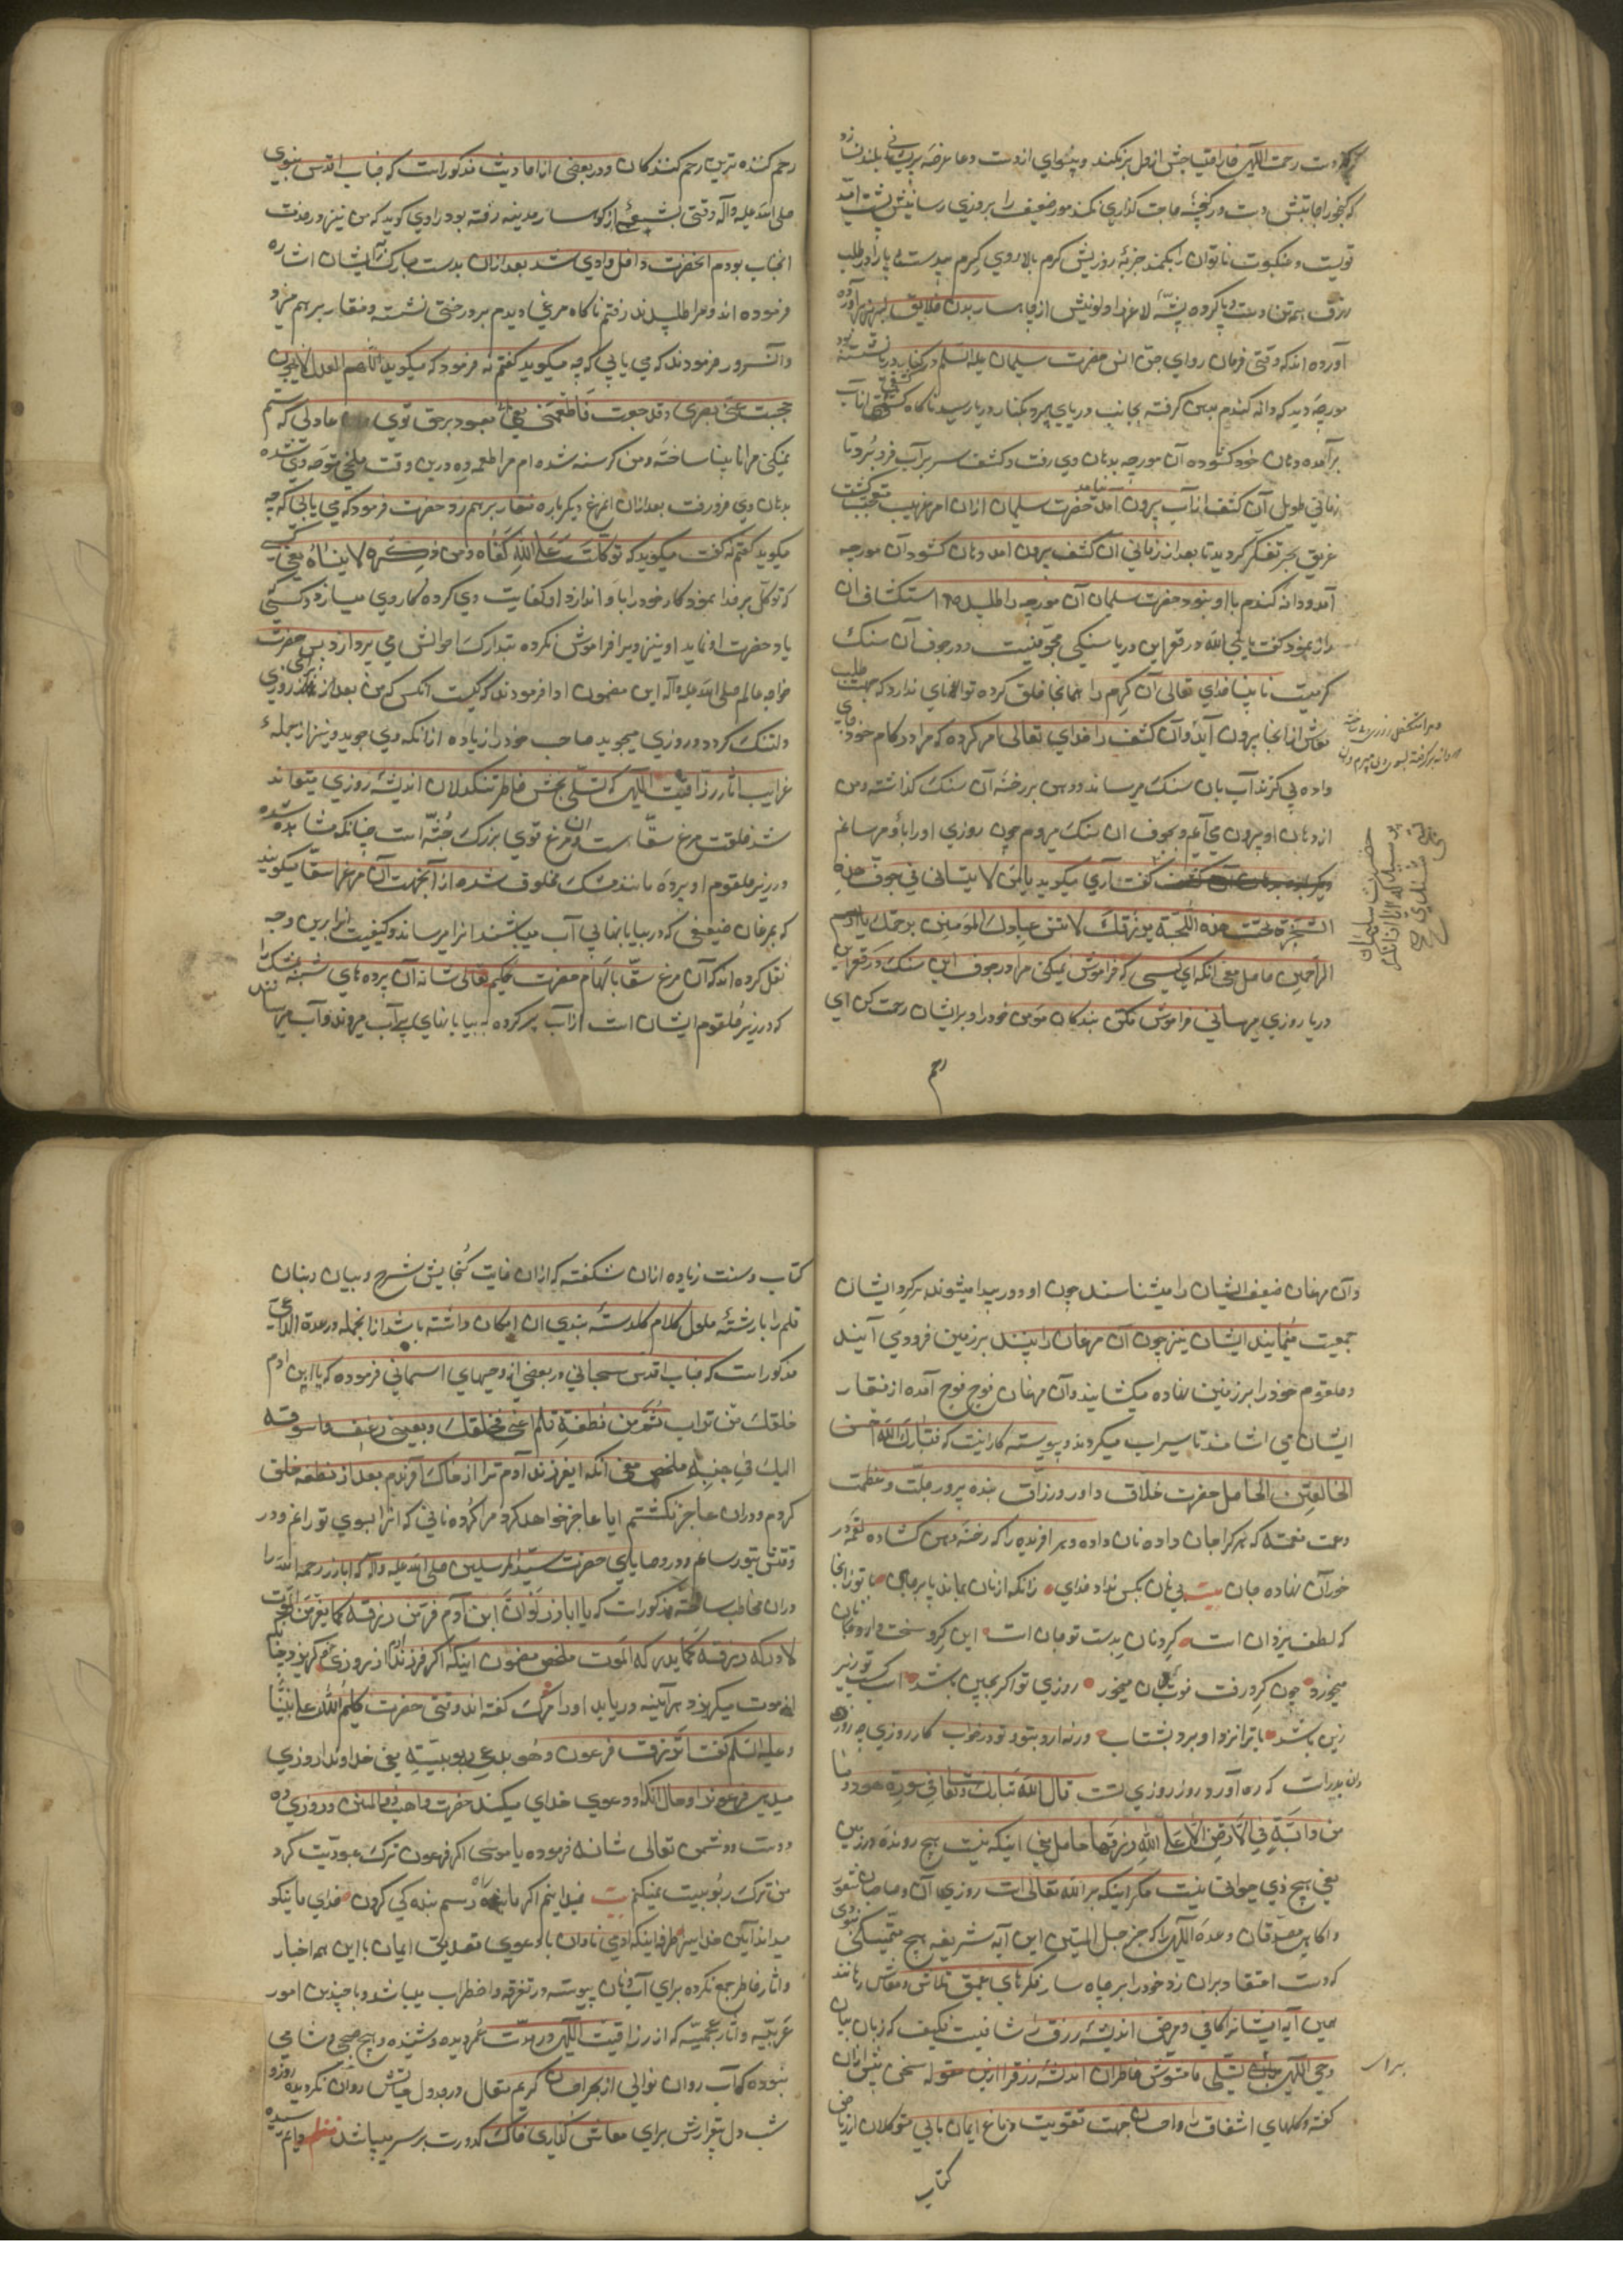 دست رحمت اللهی خار احتیاجش از دل بر نکند و بینوای از دست دعا عرضه پریشانی بلند نسازد
که گنجور اجابتش دست در گنجینه حاجت گذاری نکند مور ضعیف را بروزی رسانیش پشت امید
قویست و عنکبوت ناتوان را بکمند جزبه روزیش کرم بالا روی کرم بیدست و پا را در طلب
رزق همه تن دست و پا کرده پشه لاغر را و لونیش از جا هسار بدن خلایق
آورده اند که وقتی فرمان روای جن و انس حضرت سلیمان علیه السلم در کنار دریا نشسته بود
مورچه دید که دانه گندم بدهن گرفته بجانب دریا می‌برد بکنار دریا رسید ناگاه کشفی از آب
برآمده دهان خود کشوده آن مورچه بدهان وی رفت و کشف سر بر آب فرو برد و تا
زمانی طویل آن کشف از آب بیرون نیامد حضرت سلیمان ازان امر غریب متعجب گشت
غریق بحر تفکر گردید تا بعد از زمانی آن کشف بیرون آمد و دهان کشود آن مورچه
آمد و دانه گندم با او نبود حضرت سلیمان آن مورچه را طلبیده استکشاف آن
راز نمود گفت یا نبی الله در قعر این دریا سنگی مجوفیست و در جوف آن سنگ
کرمیست نابینا خدای تعالی آن کرم را همانجا خلق کرده توانائی ندارد که جهت طلب
معاش از آنجا بیرون آید و آن کشف را خدای تعالی امر کرده که مرا در کام خود جای
داده بی گزند آب بان سنگ میرساند و دهن بر رخنه آن سنگ گذاشته و من
از دهان او بیرون می‌آیم و بجوف ان سنگ میروم چون روزی او را باو میرسانم
دیگر باره بدهان آن کشف گفت آری میگوید یا من لا ینسانی فی جوف هذه
الصخرة تحت هذه اللجة برزقک لا تنس عبادک المؤمنین برحمتک یا ارحم
الراحمین حاصل معنی آنکه ای کسی که فراموش نمیکنی مرا در جوف این سنگ و در قعر این
دریا روزی میرسانی فراموش مکن بندگان مؤمن خود را و بر ایشان رحمت کن ای
رحم
حضرت سلیمان
پرسید که آیا از آنکه
رحم کننده ترین رحم کنندگان و در بعضی از احادیث مذکور است که جناب اقدس نبوی
صلی الله علیه و آله وقتی بشعبی از کوهسار مدینه رفته بود راوی گوید که من نیز در خدمت
انجناب بودم آنحضرت داخل وادی شد بعد ازان بدست مبارک بر ایشان اشاره
فرموده اند و مرا طلبیدند رفتم ناگاه مرغی دیدم بر درختی نشسته و منقار بر هم میزد
و آن سرور فرمودند که می یابی که چه میگوید گفتم نه فرمود که میگوید اللهم العدل الذی لا یجور
حجبت عنی بصری و قد جعت فاطعمنی یعنی معبود برحق توی عادلی که ستم
نمیکنی مرا نابینا ساختهٔ و من گرسنه شده ام مرا طعمه ده درین وقت ملخی متوجه وی شده
بدهان وی فرو رفت بعد ازان آن مرغ دیگر باره منقار بر هم زد حضرت فرمود که می یابی که چه
میگوید گفتم نه گفت میگوید که من توکل علی الله کفاه و من ذکره لا ینساه یعنی کسی
که توکل بر خدا نمود و کار خود را باو اندازد او کفایت وی کرده کار وی میسازد و کسی
یاد حضرت او نماید او نیز ویرا فراموش نکرده تبدارک احوالش می پردازد پس حضرت
خواجه عالم صلی الله علیه و آله این مضمون ادا فرمودند که کیست آنکس که من بعد از برای روزی
دلتنگ گردد و روزی میجوید صاحب خود را زیاده از آنکه وی جوید و نیز از جمله
غرایب آثار رزاقیت اللهی که تسلی بخش خاطر تنگدلان اندیشه روزی میتواند
شد خلقت مرغ سقّا است و آن مرغ قوی بزرگ جثّه است چنانکه مشاهده شده
در زیر حلقوم او پرده مانند مشک مخلوق شده از آنجهت آن مرغ را سقا میگویند
که بمرغان ضعیفی که در بیابانهای بی آب میباشند آنرا میرساند و کیفیت آنرا برین وجه
نقل کرده اند که آن مرغ سقا بالهام حضرت حکیم تعالی شانه آن پرده های شبیه بمشک را
که در زیر حلقوم ایشان است از آب پر کرده به بیابانهای بی آب میروند و آب میرسانند
وآن مرغان ضعیف ایشان را میشناسند چون او دور پیدا میشوند بر گرد ایشان
جمعیت مینمایند ایشان نیز چون آن مرغان را بینند بر زمین فرود می آیند
و حلقوم خود را بر زمین نهاده میکشایند و آن مرغان فوج فوج آمده از منقار
ایشان می اشامند تا سیراب میگردند و پیوسته کار اینست که فتبارک الله احسن
الخالقین الحاصل حضرت خلاق داور و رزاق بنده پرور جلت و عظمت
و عمت نعمته که هر کرا جان داده نان داده و هر آفریده را که رخنه دهن کشاده لقمه در
خوران نهاده جان بیت بی نان بکس نداد خدای زانکه از نان بماند پا بر جای با تو زانجا
که لطف یزدان است گرو نان بدست تو جان است این گرو سخت دار و نان
میخور چون گرو رفت قوت جان میخور روزی تو اگر بچین باشد اسب کسب تو زیر
زین باشد یا ترا نزد او برد بشتاب ورنه او ارد بتو تو در خواب کار روزی چو روز
دان بدرست که ره آورد روز روزی تست قال الله تبارک و تعالی فی سورة هود و ما
من دابة فی الارض الا علی الله رزقها حاصل معنی اینکه نیست هیچ رونده در زمین
یعنی هیچ ذی حیوة نیست مگر اینکه بر الله تعالی است روزی آن
و اگاه مصدقان وعده اللهی را که جز حبل المتین این آیه شریفه هیچ متمسکی نبودی
که دست اعتقاد بران زد خود را بر چاه سار فکرهای عمیق تلاش معاش رهانند
همین آیه ایشانرا کافی و مرض اندیشه رزق را شافیست فکیف که زبان بیان
وحی اللهی بتسلی ما مشوش خاطران اندیشه رزق را ازین مقوله سخن بیش ازان
گفته و گلهای اشفاقت و احسان جهت تقویت دماغ ایمان ما بی متوکلان از ریاض
کتاب
کتاب و سنت زیاده ازان شکفته که ازان غایت گنجایش شرح و بیان و بنان
قلم را با رشته طول کلام گلدسته بندی ان امکان داشته باشد ازانجمله در عدة الداعی
مذکور است که جناب اقدس سبحانی در بعضی از وحیهای اسمانی فرموده که یا ابن ادم
خلقتک من تراب ثم من نطفة فلم اعی بخلقک او یعیینی رغیف اسوقه
الیک فی حینه ملخص معنی آنکه ایفرزند آدم ترا از خاک آفریدم بعد از نطفه خلق
کردم و دران عاجز نگشتم ایا عاجز خواهد کرد مرا گرده نانی که انرا بسوی تو رانم و در
وقتش بتو رسانم و در وصایای حضرت سید المرسلین صلی الله علیه و آله که اباذر رحمه الله را
دران مخاطب ساخته مذکور است که یا اباذر لو ان ابن آدم فر من رزقه کما یفر من الموت
لادرکه رزقه کما یدرکه الموت ملخص مضمون اینکه اگر فرزند آدم از روزی گریزد چنانچه
از موت میگریزد هر آینه دریابد او را مرگ گفته اند وقتی حضرت کلیم الله علی نبینا
و علیه السلم گفت اترزق فرعون و هو یدعی ربوبیته یعنی خداوندا روزی
میدهی فرعونرا و حال آنکه او دعوی خدای میکند حضرت واهب المنن و روزی ده
دوست و دشمن تعالی شانه فرموده یا موسی اگر فرعون ترک عبودیت کرد
من ترک ربوبیت نمیکنم بیت نمیدانیم اگر ما راه و رسم بنده گی کردن خدای ما نیکو
میداند آیین خداییرا طرفه اینکه آدمی نادان با دعوی تصدیق ایمان با این همه اخبار
و آثار خاطر جمع نکرده برای آب و نان پیوسته در تفرقه و اضطراب میباشد و با چندین امور
غریبه و آثار عجیبه که از رزاقیت اللهی در مدت عمر دیده و شنیده و هیچ صبحی و شامی
نبوده که آب روان نوالی از بحر احسان کریم متعال در جدول معاش روان نگردیده روز و
شب دل بیقرارش برای معاش گذاری خاک کدورت بر سر میپاشد